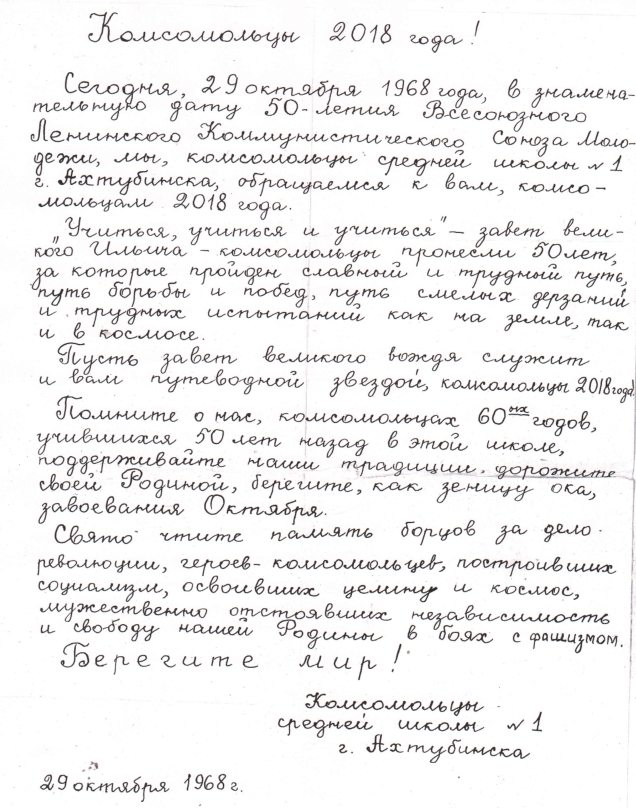 Комсомольцы 2018 года!
Сегодня, 29 октября 1968 года, в знамена-
тельную дату 50-летия Всесоюзного
Ленинского Коммунистического Союза Моло-
дежи, мы, комсомольцы средней школы №1
г. Ахтубинска, обращаемся к вам, комсо-
мольцам 2018 года.
„Учиться, учиться и учиться" – завет вели-
кого Ильича – комсомольцы пронесли 50 лет,
за которые пройден славный и трудный путь,
путь борьбы и побед, путь смелых дерзаний
и трудных испытаний как на земле, так
и в космосе.
Пусть завет великого вождя служит
и вам путеводной звездой, комсомольцы 2018 года.
Помните о нас, комсомольцах 60ых годов,
учившихся 50 лет назад в этой школе,
поддерживайте наши традиции, дорожите
своей Родиной, берегите, как зеницу ока,
завоевания Октября.
Свято чтите память борцов за дело
революции, героев-комсомольцев, построивших
социализм, освоивших целину и космос,
мужественно отстоявших независимость
и свободу нашей Родины в боях с фашизмом.
Берегите мир!
Комсомольцы
средней школы №1
г. Ахтубинска
29 октября 1968 г.